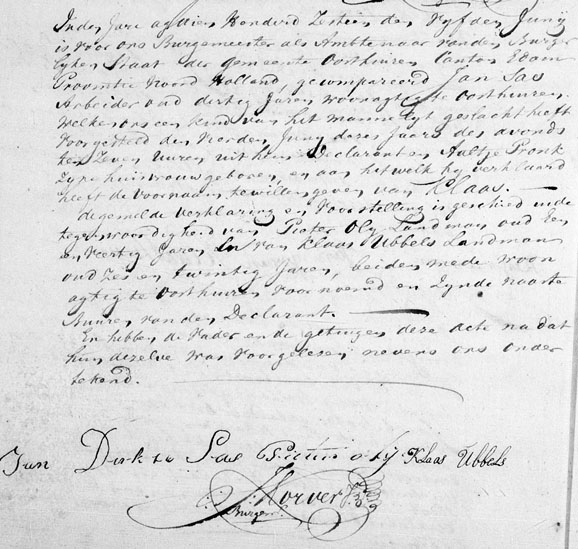 In den Jare agttien Honderd Zestien den Vyfden Juny
is voor ons Burgemeester als Ambtenaar van den Burger
lyken Staat der gemeente Oosthuizen Canton Edam
Provintie Noord Holland, gecompareerd Jan Sas
Arbeider oud dertig Jaren woonagtig te Oosthuizen.
Welke ons een kind van het mannelyk geslacht heeft
Voorgesteld den Juny dezes Jaars des avonds
ten Zeven Uuren uit hem Declarant en Aaltje Pronk
Zyne huisvrouw geboren, en aan hetwelk hy verklaard
heeft de voornaam te willen geven van Klaas.
de gemelde verklaring en Voorstelling is geschied in de
tegenwoordigheid van Pieter Oly Landman oud Een
en Veertig Jaren En van Klaas Ubbels Landman
oud Zes en twintig Jaren, beiden mede woon
agtig te Oosthuizen voornoemd en Zynde naaste
Buuren van den Declarant.
En hebben de Vader en de getuigen deze acte na dat
hun dezelve was voorgelesen nevens ons onder
tekend.
Jan Dirksz Sas Pieter olij Klaas Ubbels
Burgem